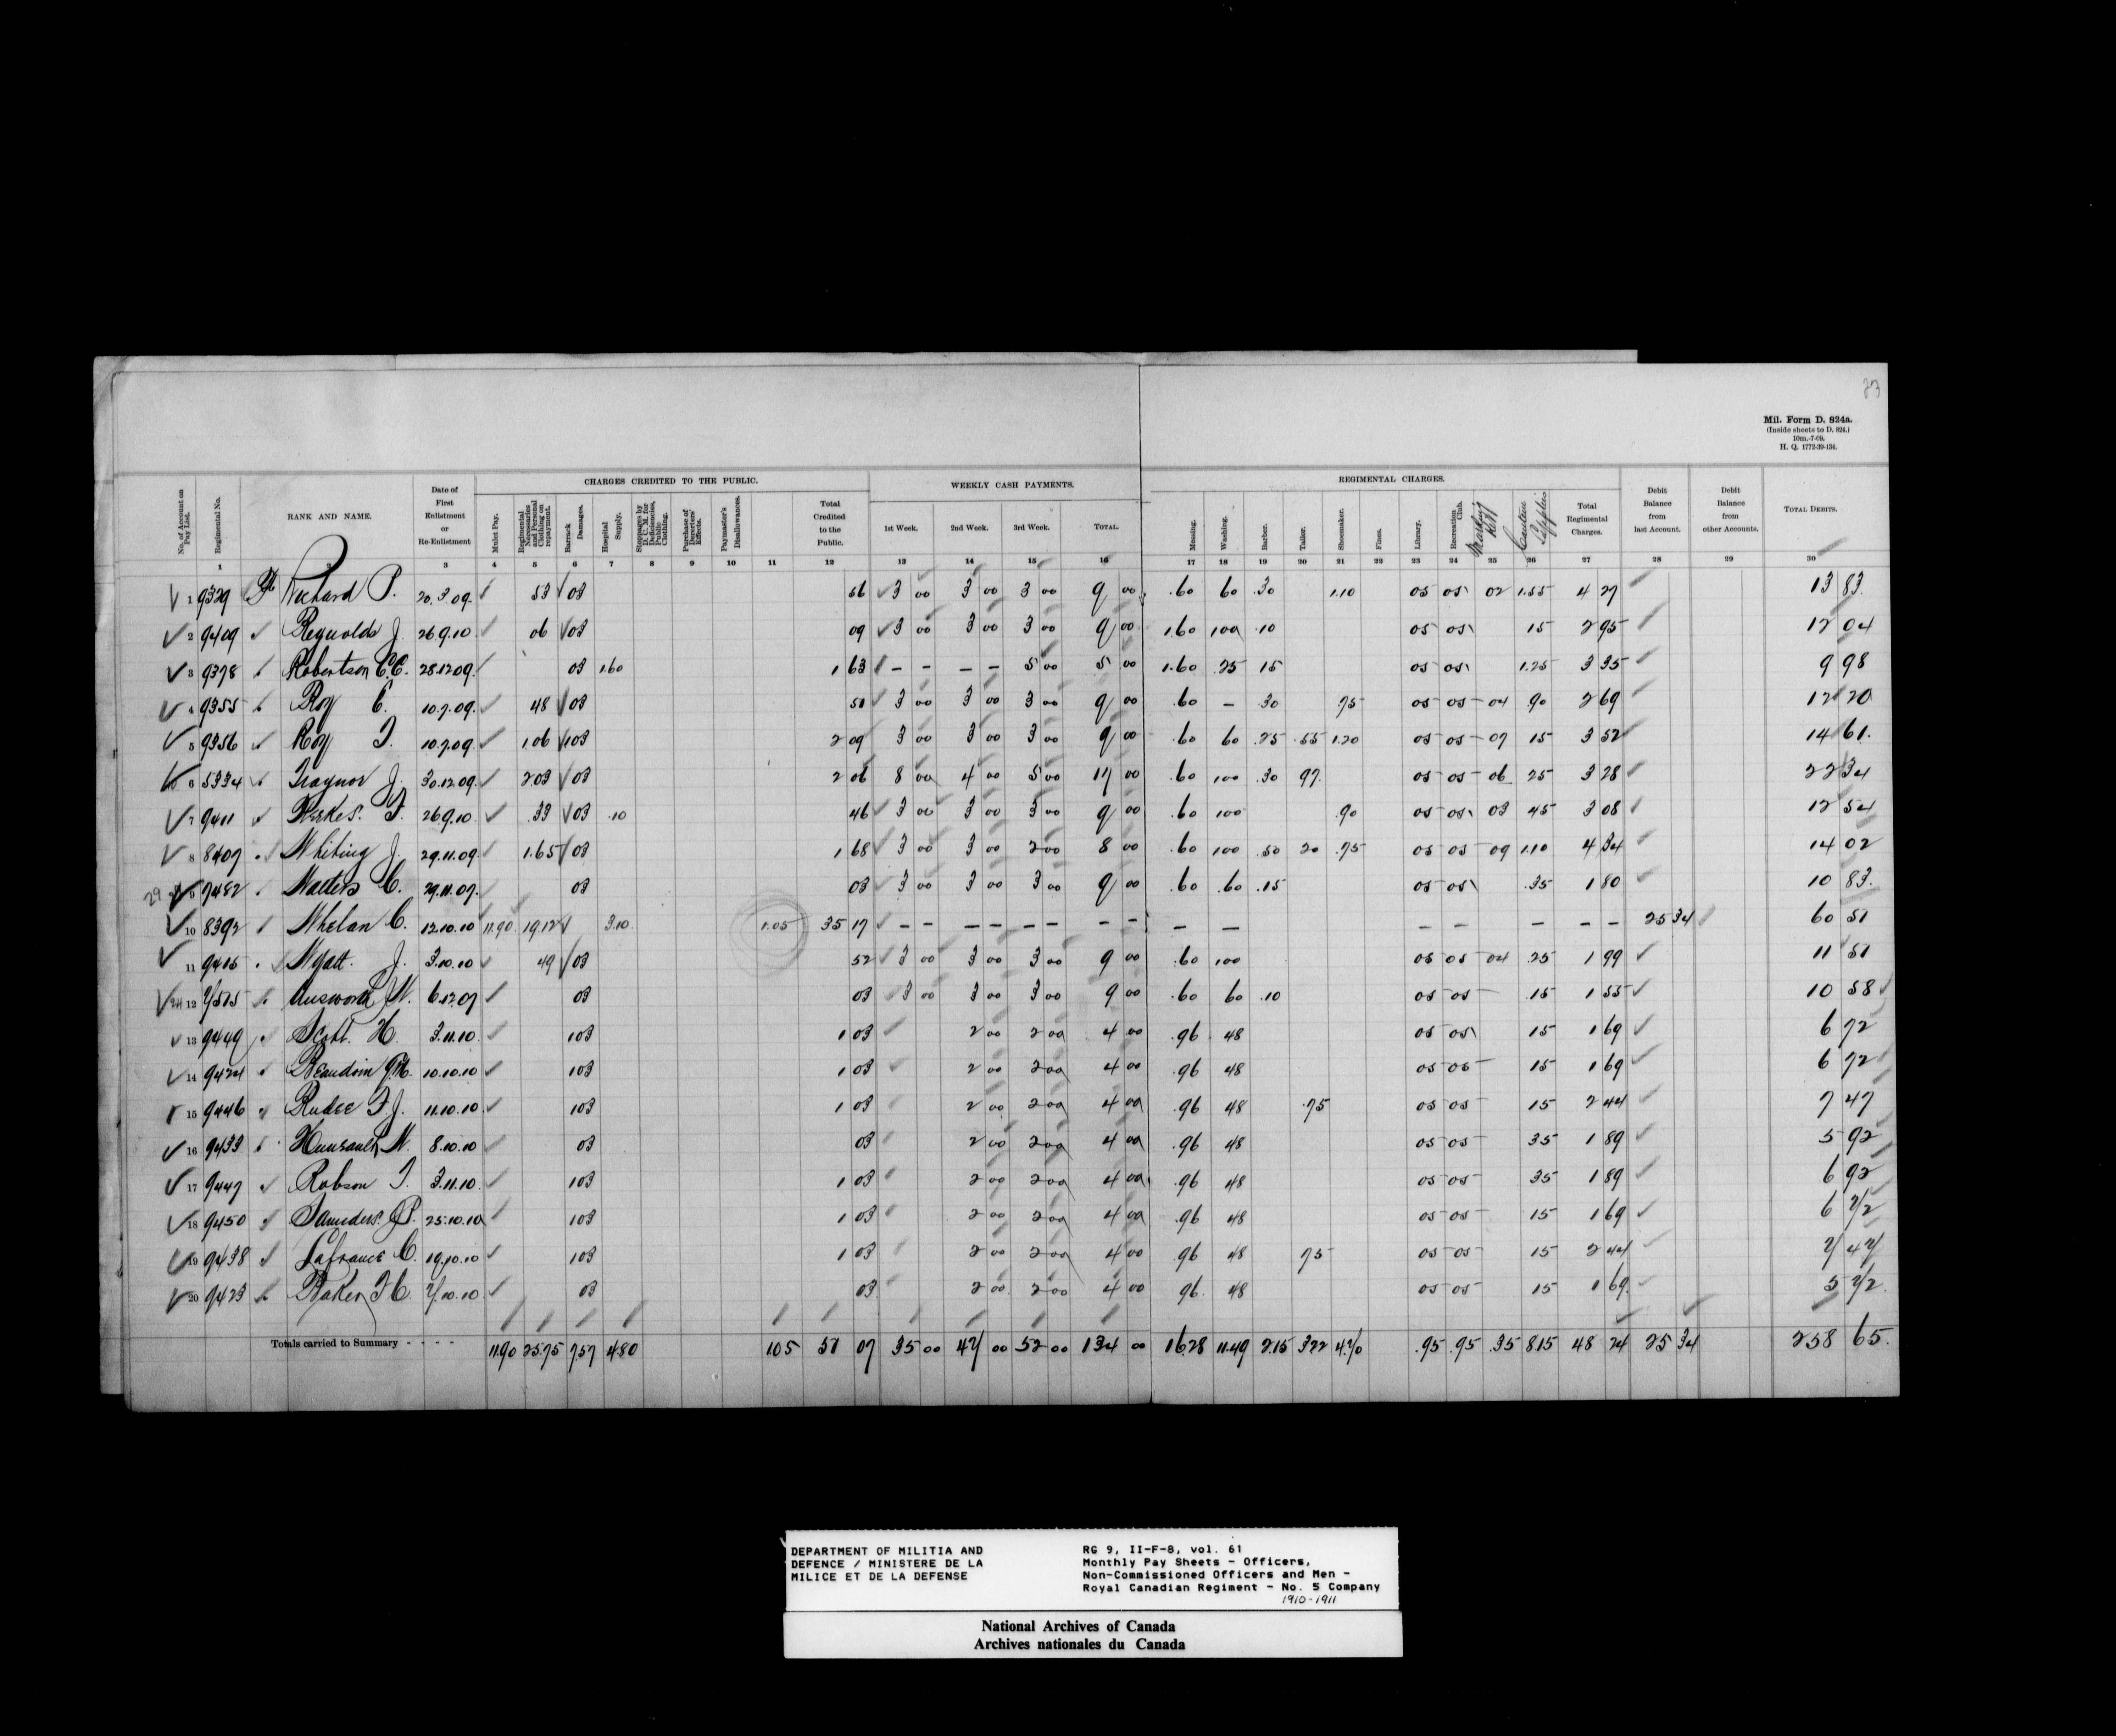 23
Mil. Form D. 824a.
(Inside sheets to D. 824.)
10m.-7-09.
H. Q. 1772-39-134.
No. of Account on Pay List.
Regimental No.
RANK AND NAME.
Date of First Enlistment or Re-Enlistment
CHARGES CREDITED TO THE PUBLIC.
Mulct Pay.
Regimental Necessaries and Personal Clothing on repayment.
Barrack Damages.
Hospital Supply.
Stoppages by D. C. M. for Deficiencies, Public Clothing.
Purchase of Deserters' Effects.
Paymaster's Disallowances.
Total Credited to the Public.
WEEKLY CASH PAYMENTS.
1st Week. 2nd Week. 3rd Week. TOTAL.
REGIMENTAL CHARGES.
Messing. Washing. Barber. Tailor. Shoemaker. Fines. Library. Recreation Club. Marking Kit Canteen Supplies Total Regimental Charges.
Debit Balance from last Account.
Debit Balance from other Accounts.
TOTAL DEBITS.
1 2 3 4 5 6 7 8 9 10 11 12 13 14 15 16 17 18 19 20 21 22 23 24 25 26 27 28 29 30
1 9329 Pte Richard P. 20.3.09. 53 03 56 3 00 3 00 3 00 9 00 .60 60 .30 1.10 05 05 02 1.55 4 27 13 83
2 9409 Reynolds J. 26.9.10 06 03 09 3 00 3 00 3 00 9 00 1.60 1.00 .10 05 05 15 2 95 12 04
3 9378 Robertson C.E. 28.12.09. 03 1.60 1 63 – – – – 5 00 5 00 1.60 .25 15 05 05 1.25 3 35 9 98
4 9355 Roy C. 10.7.09. 48 03 51 3 00 3 00 3 00 9 00 .60 – .30 .75 05 05 04 .90 2 69 12 20
5 9356 Roy T. 10.7.09. 1.06 1 03 2 09 3 00 3 00 3 00 9 00 .60 60 .25 .55 1.20 05 05 07 15 3 52 14 61
6 5334 Traynor J. 30.12.09. 2 03 03 2 06 8 00 4 00 5 00 17 00 .60 1 00 .30 97 05 05 06 25 3 28 22 34
7 9411 26.9.10 .33 03 .10 46 3 00 3 00 3 00 9 00 .60 1 00 .90 05 05 03 45 3 08 12 54
8 8407 Whiting J. 29.11.09. 1.65 03 1 68 3 00 3 00 2 00 8 00 .60 1 00 .50 20 .75 05 05 09 1.10 4 34 14 02
9 7482 Watters C. 29.11.07. 03 03 3 00 3 00 3 00 9 00 .60 .60 .15 05 05 .35 1 80 10 83
10 8392 Whelan C. 12.10.10 11.90 19.12 3.10 1.05 35 17 – – – – – – – – – – – – – – – 25 34 60 51
11 9415 Wyatt J. 3.10.10 49 03 52 3 00 3 00 3 00 9 00 .60 1 00 05 05 04 .25 1 99 11 51
12 7515 Ainsworth W. 6.12.07 03 03 3 00 3 00 3 00 9 00 .60 60 .10 05 05 .15 1 55 10 58
13 9449 Scott H. 3.11.10 1 03 1 03 2 00 2 00 4 00 .96 48 05 05 15 1 69 6 72
14 9424 Beaudoin 10.10.10 1 03 1 03 2 00 2 00 4 00 .96 48 05 05 15 1 69 6 72
15 9446 Rudee F.J. 11.10.10 1 03 1 03 2 00 2 00 4 00 .96 48 .75 05 05 15 2 44 7 47
16 9433 Hunsault W. 8.10.10 03 03 2 00 2 00 4 00 .96 48 05 05 35 1 89 5 92
17 9447 Robson T. 3.11.10 1 03 1 03 2 00 2 00 4 00 .96 48 05 05 35 1 89 6 92
18 9450 Saunders P. 25.10.10 1 03 1 03 2 00 2 00 4 00 .96 48 05 05 15 1 69 6 72
19 9438 Lafrance C. 19.10.10 1 03 1 03 2 00 2 00 4 00 .96 48 75 05 05 15 2 44 7 47
20 9423 Baker F.C. 7.10.10 03 03 2 00 2 00 4 00 96 48 05 05 15 1 69 5 72
Totals carried to Summary - - - - 11.90 25.75 7.57 4.80 1 05 51 07 35 00 47 00 52 00 134 00 16.28 11.49 2.15 3.22 4.70 .95 .95 .35 8.15 48 24 25 34 258 65
DEPARTMENT OF MILITIA AND
DEFENCE / MINISTERE DE LA
MILICE ET DE LA DEFENSE
RG 9, II-F-8, vol. 61
Monthly Pay Sheets - Officers,
Non-Commissioned Officers and Men -
Royal Canadian Regiment - No. 5 Company
1910-1911
National Archives of Canada
Archives nationales du Canada